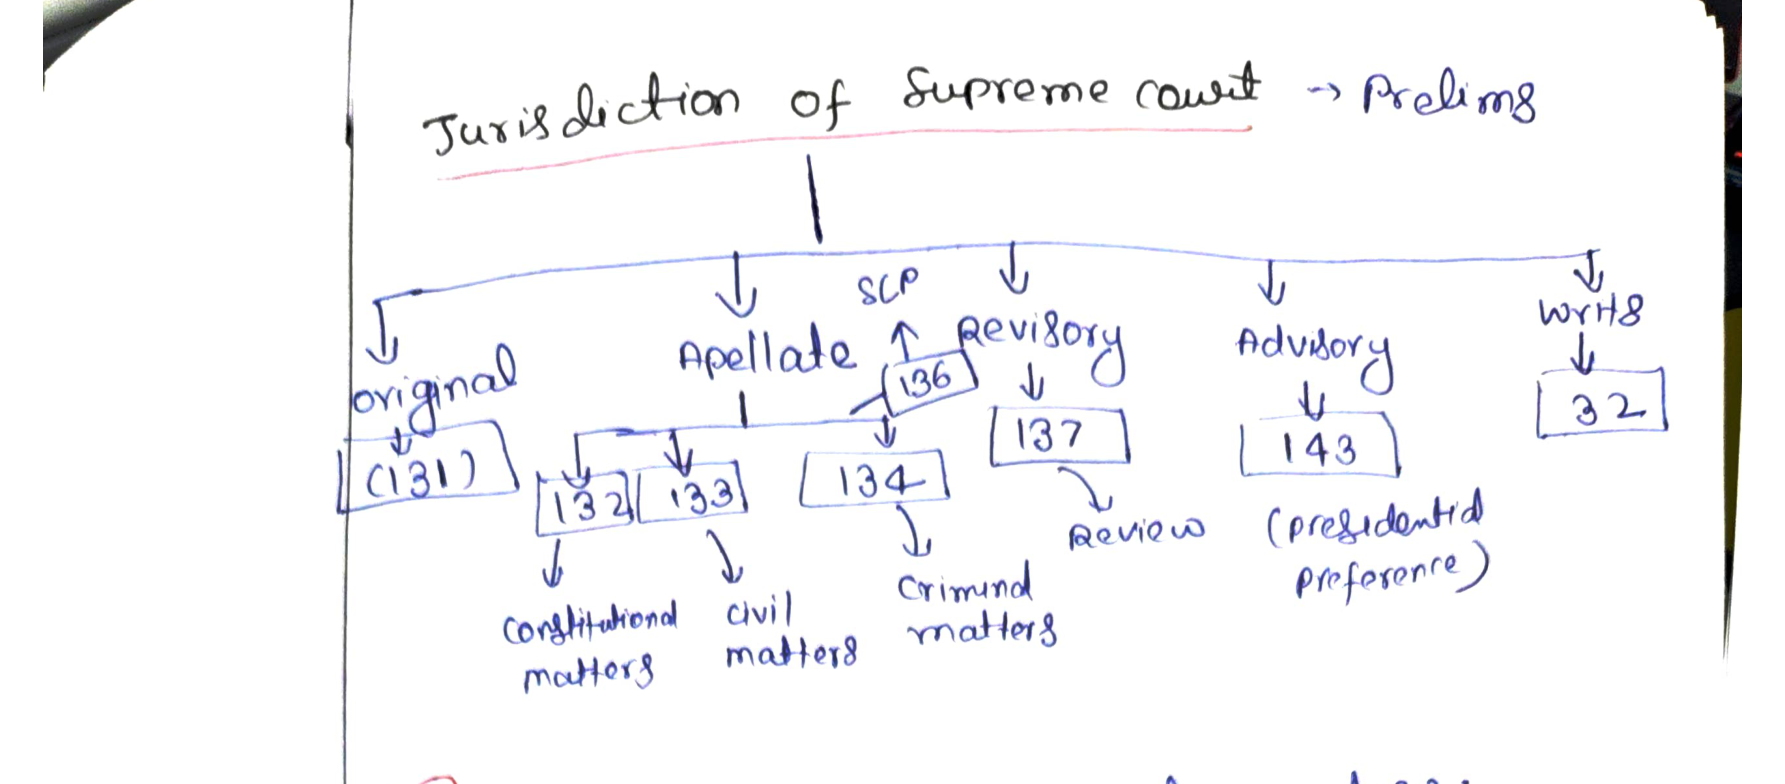 Jurisdiction of Supreme court → Prelims
original
(131)
Apellate
SLP
136
132
133
134
constitutional
matters
civil
matters
criminal
matters
Revisory
137
Review
Advisory
143
(presidential
preference)
writs
32